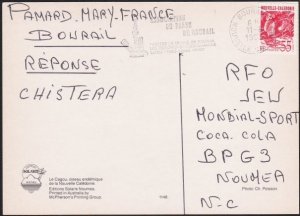 PAMARD. MARY-FRANCE
BOURAIL
RÉPONSE
CHISTERA
NOUVELLE-CALÉDONIE
RFO
JEU
MONDIAL-SPORT
COCA. COLA
BP G3
NOUMEA
N-C
Le Cagou, oiseau endémique
de la Nouvelle Calédonie
Editions Solaris Nouméa
Printed in Australia by
McPherson's Printing Group.
Photo Ch. Poisson